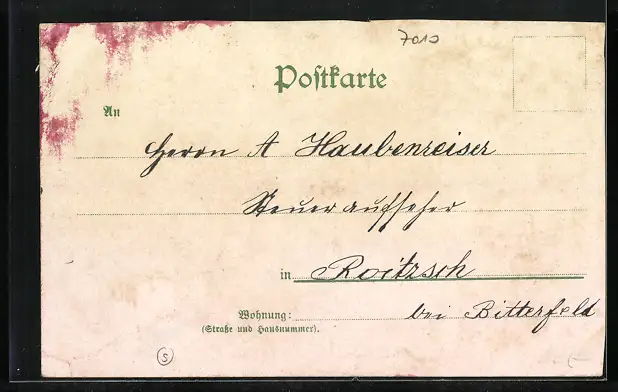 7010
Postkarte
An
Herrn A Haubenreiser
Steueraufseher
in Roitzsch
Wohnung: bei Bitterfeld
(Straße und Hausnummer).
S